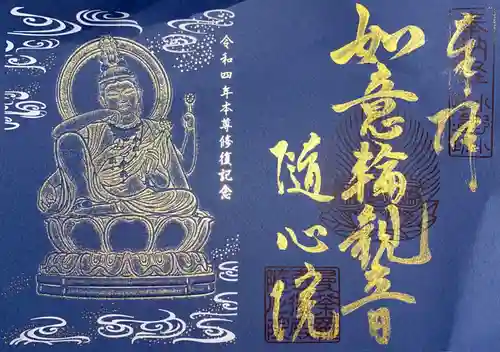 奉拝
如意輪観音
随心院
令和四年本尊修復記念